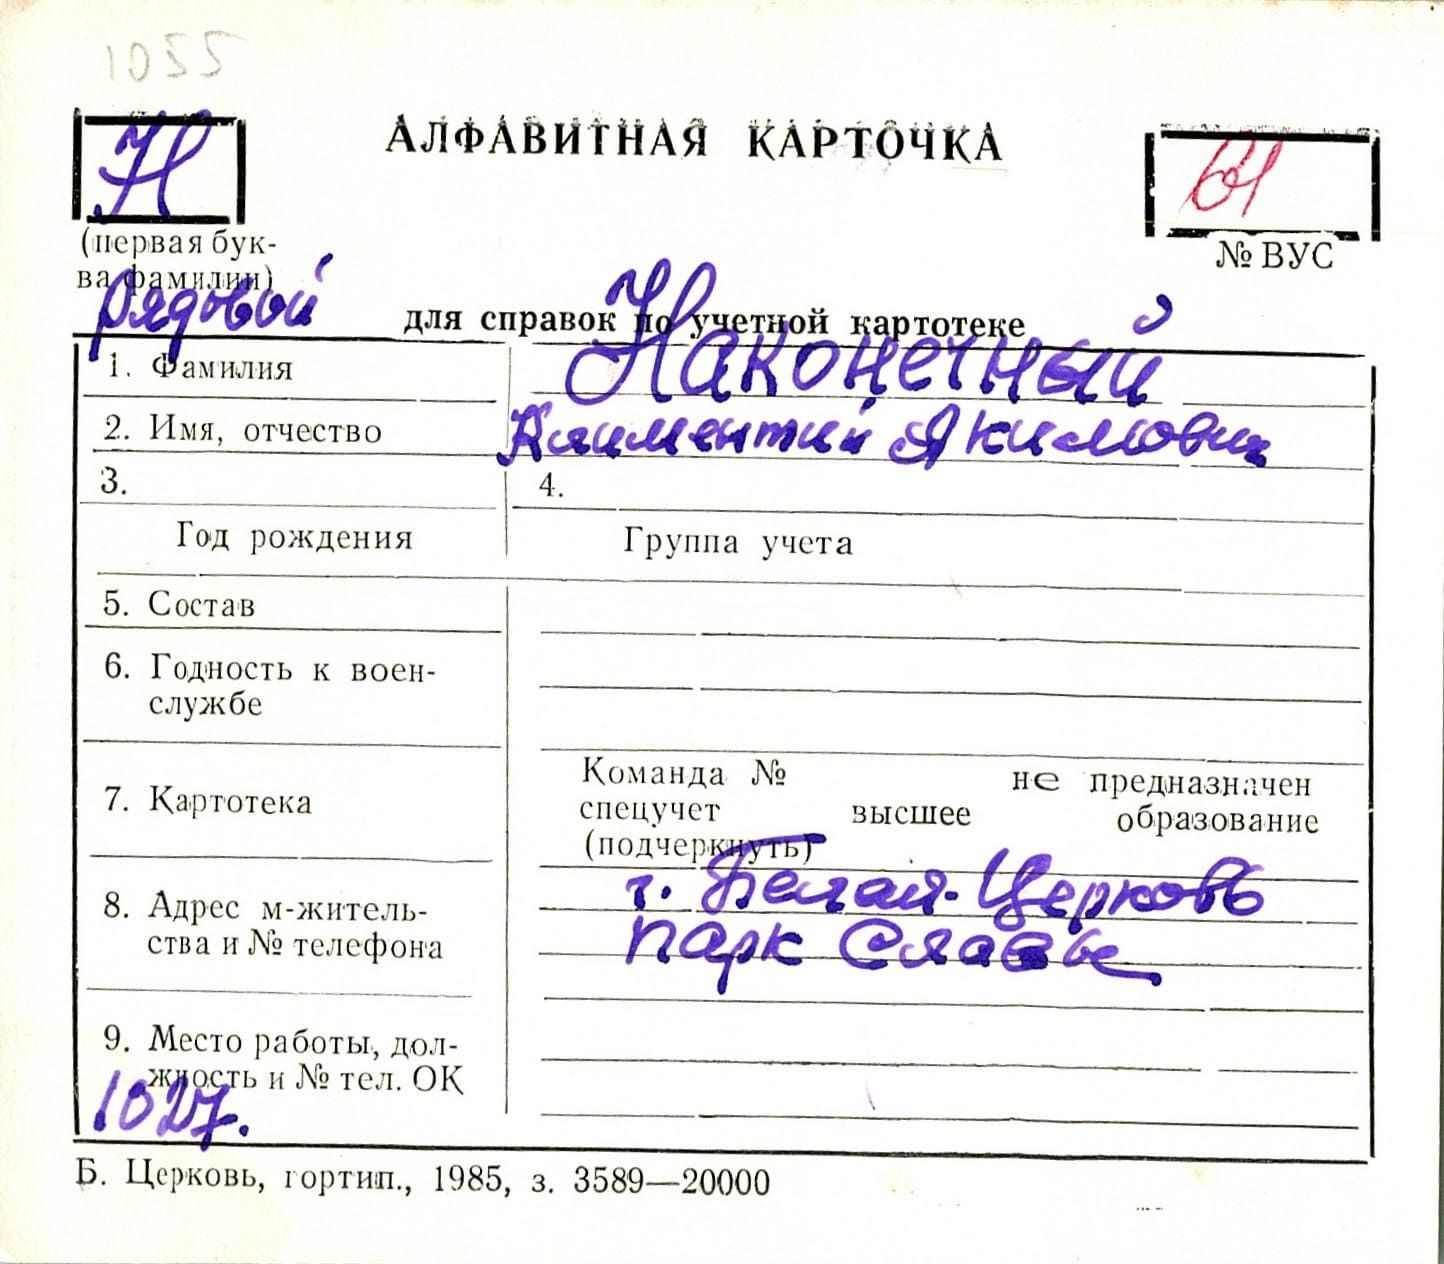 1055
Н
АЛФАВИТНАЯ КАРТОЧКА
61
(первая бук-
ва фамилии)
№ ВУС
рядовой
для справок по учетной картотеке
1. Фамилия Наконечный
2. Имя, отчество Климентий Якимович
3. 4.
Год рождения Группа учета
5. Состав
6. Годность к воен-
службе
7. Картотека
Команда № не предназначен
спецучет высшее образование
(подчеркнуть)
8. Адрес м-житель-
ства и № телефона
г. Белая-Церковь
парк Славы
9. Место работы, дол-
жность и № тел. ОК
1027.
Б. Церковь, гортип., 1985, з. 3589—20000